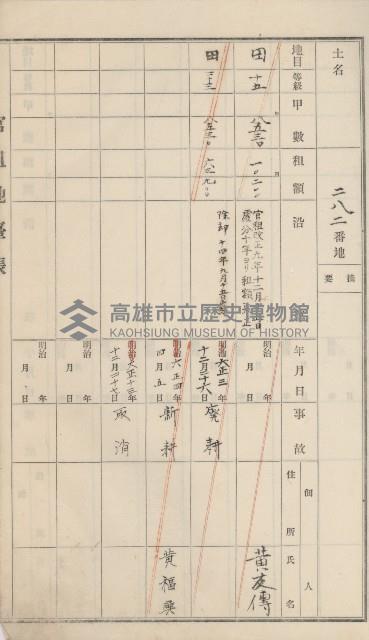 土名
二八二番地
摘要
地目
等級
甲數
租額
沿
年月日
事故
佃人
住所
氏名
田
十五
八五三〇
一〇二〇〇
官租改正九年十二月
處分十年ヨリ租額
明治 年 月 日
黃友傳
田
八五三〇
除却 十四年九月十五
明治大正三年十二月二十六日
廢耕
明治大正四年四月五日
新耕
黃福興
明治大正十三年十二月二十七日
取消
明治 年 月 日
明治 年 月 日
官租地臺帳
高雄市立歷史博物館
KAOHSIUNG MUSEUM OF HISTORY